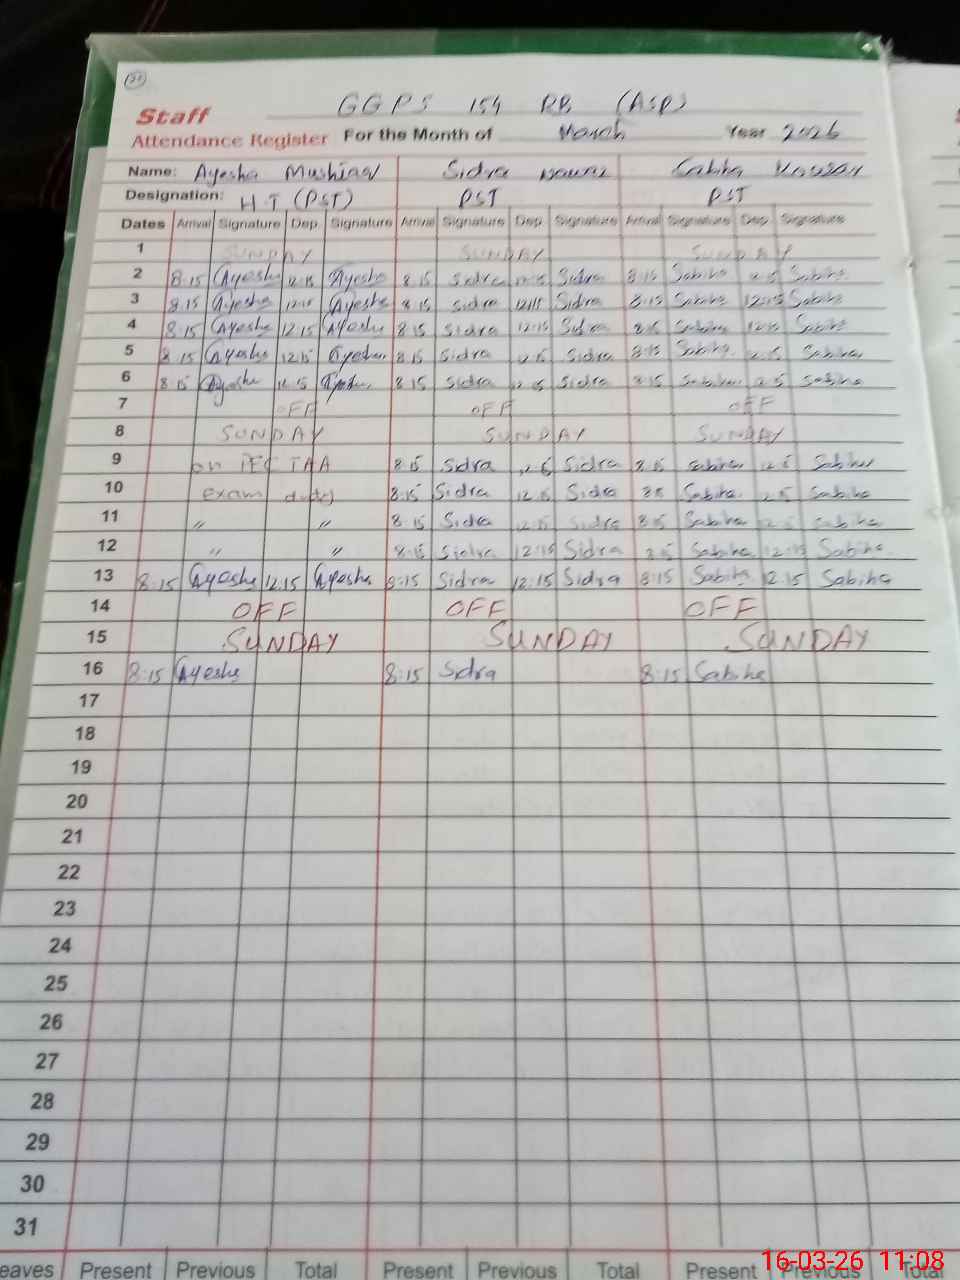 GGPS 154 RB (ASP)
Staff
Attendance Register For the Month of March Year 2026
Name: Ayesha Sidra Sabiha
Designation: H.T (PST) PST PST
Dates Arrival Signature Dep Signature Arrival Signature Dep Signature Arrival Signature Dep Signature
1 SUNDAY SUNDAY SUNDAY
2 8:15 Ayesha 12:15 Ayesha 8:15 Sidra Sidra 8:15 Sabiha Sabiha
3 8:15 Ayesha 12:15 Ayesha 8:15 Sidra 12:15 Sidra 8:15 Sabiha 12:15 Sabiha
4 8:15 Ayesha 12:15 Ayesha 8:15 Sidra 12:15 Sidra 8:15 Sabiha 12:15 Sabiha
5 8:15 Ayesha 12:15 Ayesha 8:15 Sidra 12:15 Sidra 8:15 Sabiha 12:15 Sabiha
6 8:15 Ayesha 12:15 Ayesha 8:15 Sidra 12:15 Sidra 8:15 Sabiha 12:15 Sabiha
7 OFF OFF OFF
8 SUNDAY SUNDAY SUNDAY
9 on PEC TAA 8:15 Sidra 12:15 Sidra 8:15 Sabiha 12:15 Sabiha
10 exam duty 8:15 Sidra 12:15 Sidra 8:15 Sabiha 12:15 Sabiha
11 " " 8:15 Sidra 12:15 Sidra 8:15 Sabiha 12:15 Sabiha
12 " " 8:15 Sidra 12:15 Sidra 8:15 Sabiha 12:15 Sabiha
13 8:15 Ayesha 12:15 Ayesha 8:15 Sidra 12:15 Sidra 8:15 Sabiha 12:15 Sabiha
14 OFF OFF OFF
15 SUNDAY SUNDAY SUNDAY
16 8:15 Ayesha 8:15 Sidra 8:15 Sabiha
17
18
19
20
21
22
23
24
25
26
27
28
29
30
31
eaves Present Previous Total Present Previous Total Present Previous Total
16-03-26 11:08